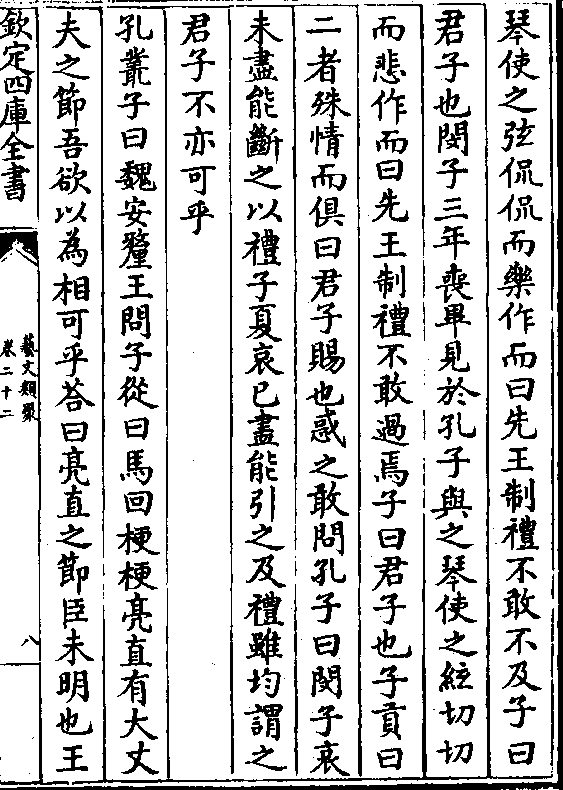 琴使之弦侃侃而樂作而曰先王制禮不敢不及子曰
君子也閔子三年喪畢見於孔子與之琴使之絃切切
而悲作而曰先王制禮不敢過焉子曰君子也子貢曰
二者殊情而俱曰君子賜也惑之敢問孔子曰閔子哀
未盡能斷之以禮子夏哀已盡能引之及禮雖均謂之
君子不亦可乎
孔叢子曰魏安釐王問子從曰馬回梗梗亮直有大丈
夫之節吾欲以為相可乎荅曰亮直之節臣未明也王
欽定四庫全書
藝文類聚
卷二十二
八